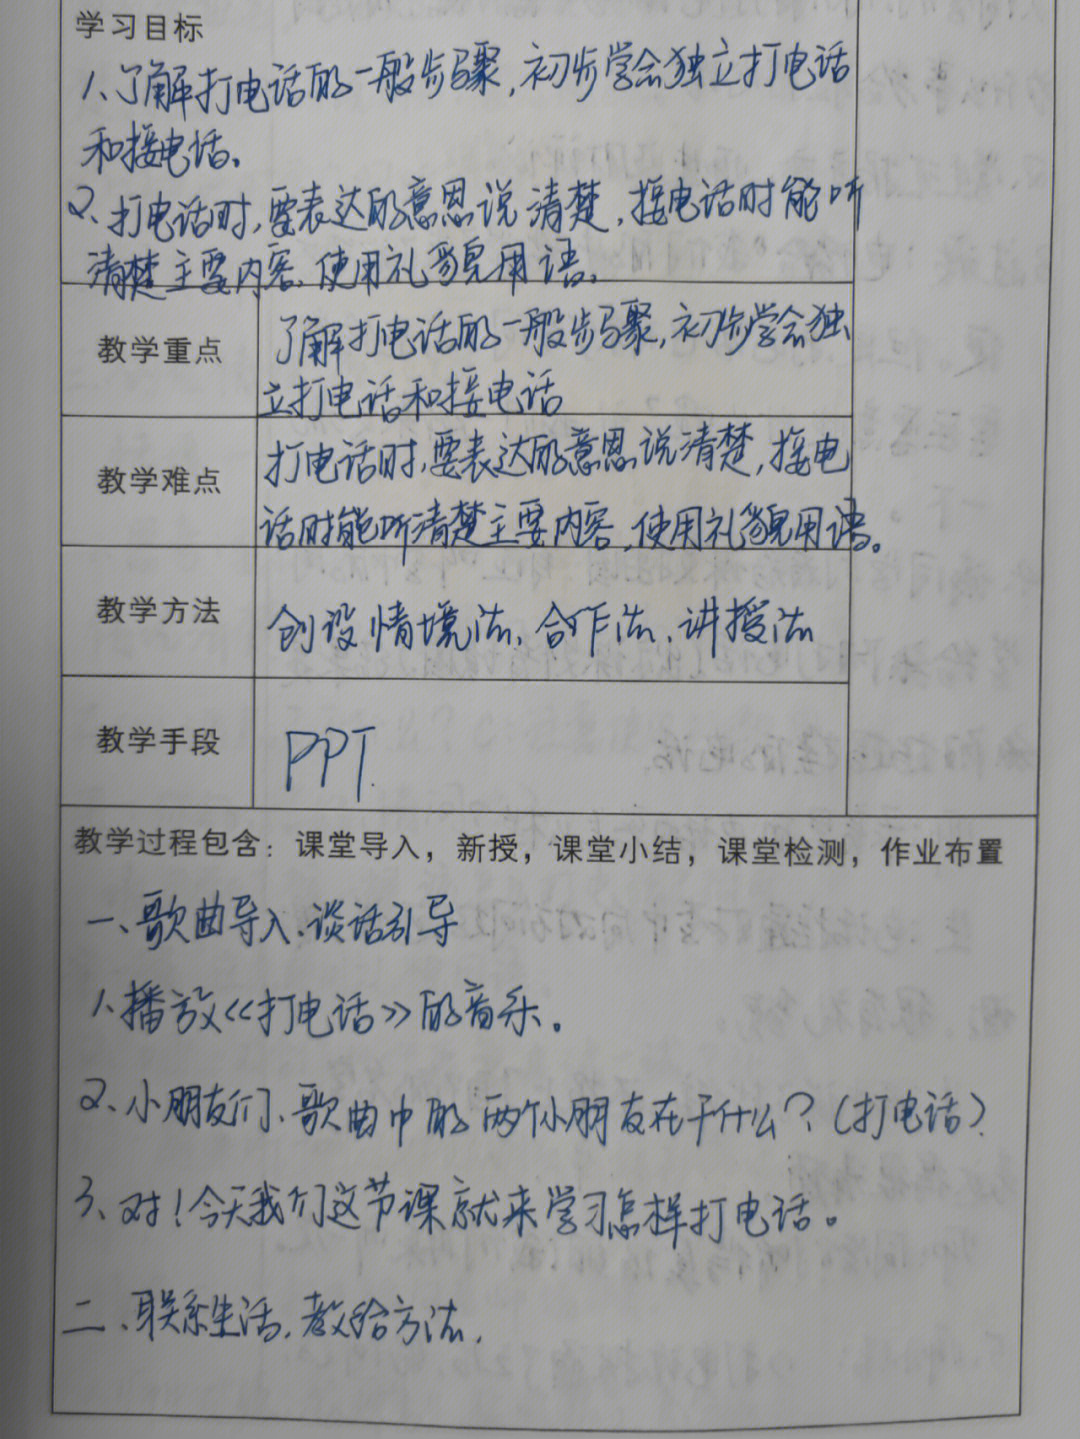 学习目标
1、了解打电话的一般步骤,初步学会独立打电话
和接电话。
2、打电话时,要表达的意思说清楚,接电话时能听
清楚主要内容,使用礼貌用语。
教学重点
了解打电话的一般步骤,初步学会独
立打电话和接电话
教学难点
打电话时,要表达的意思说清楚,接电
话时能听清楚主要内容,使用礼貌用语。
教学方法
创设情境法、合作法、讲授法
教学手段
PPT.
教学过程包含:课堂导入,新授,课堂小结,课堂检测,作业布置
一、歌曲导入、谈话引导
1、播放《打电话》的音乐。
2、小朋友们、歌曲中的两个小朋友在干什么?(打电话)
3、对!今天我们这节课就来学习怎样打电话。
二、联系生活,教给方法.